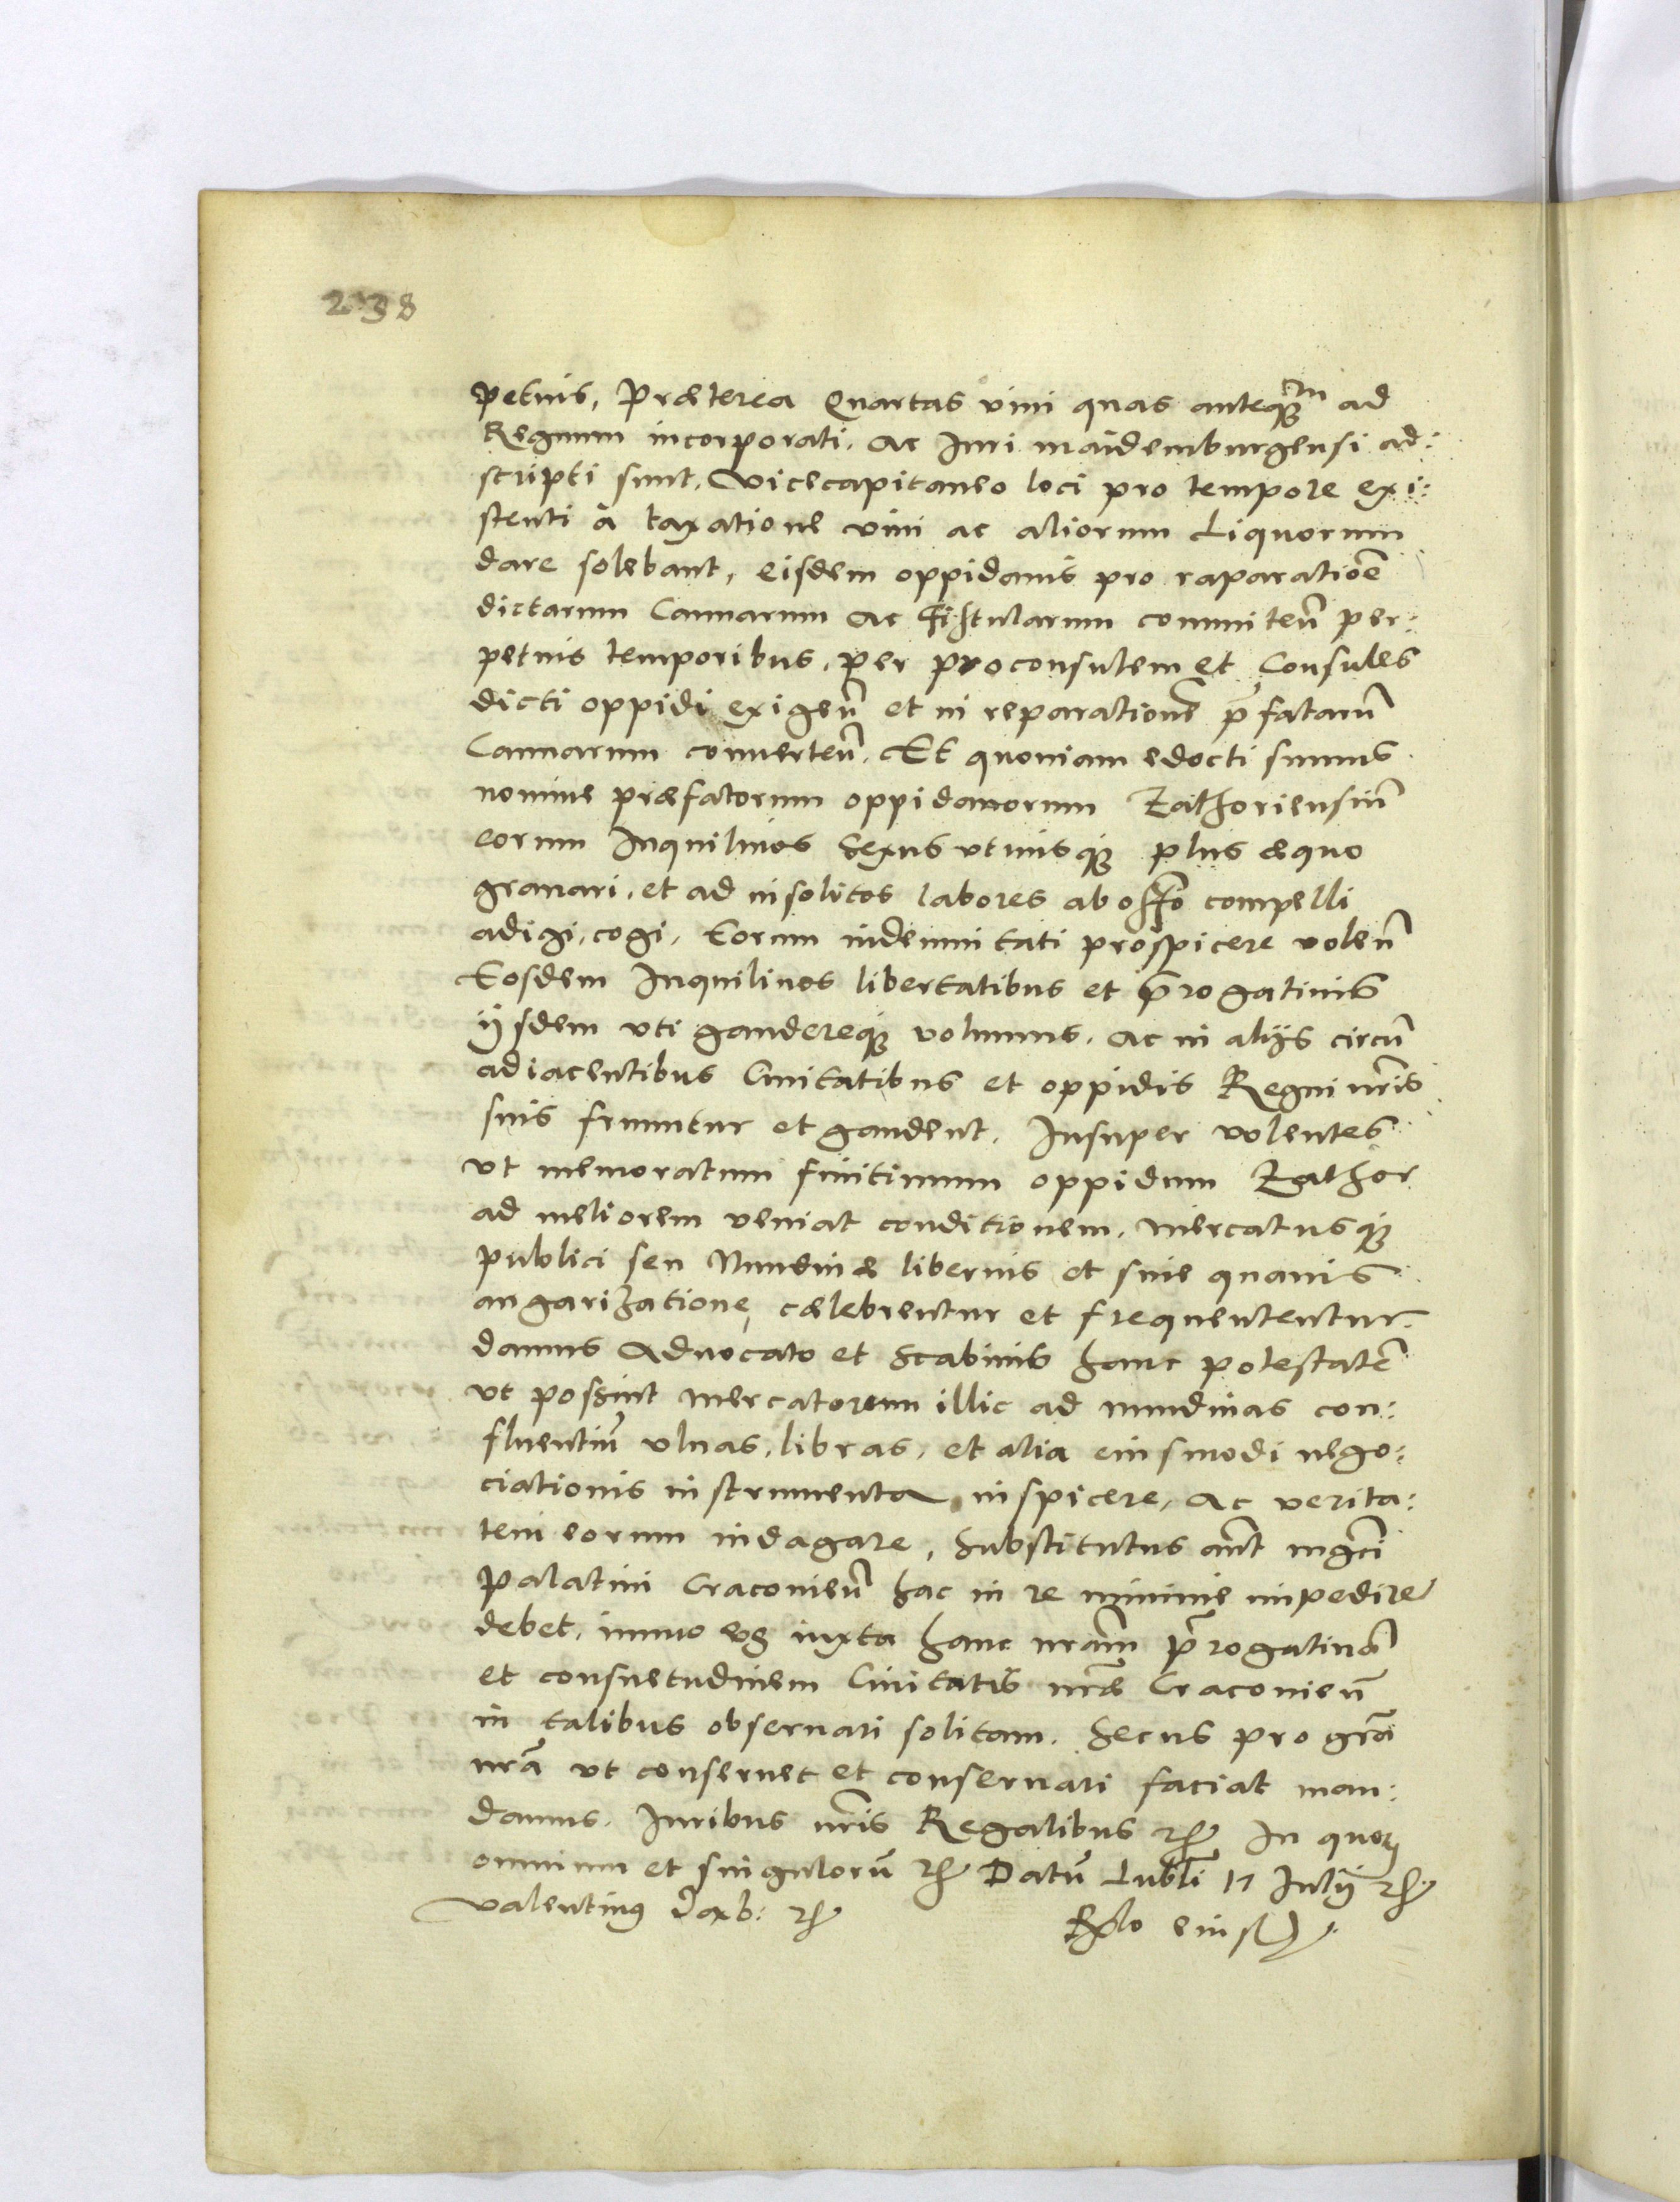 238
petuis, Præterea Quartas vini quas anteq̃ȝm ad
Regnum incorporati, ac Iuri maidemburgensi ad:
scripti sunt, Vicecapitaneo loci pro tempore exi:
stenti à taxatione vini ac aliorum Liquorum
dare solebant, eisdem oppidanis pro raparatiõe
dictarum Cannarum ac Fistularum conuiteñ per:
petuis temporibus, per proconsulem et Consules
dicti oppidi exigeñ et in reparationẽ p̃fatarũ
Cannarum conuerteñ. Et quoniam edocti sumus
nomine præfatorum oppidanorum Zathoriensiũ
eorum Inquilinos sexus vtriusqȝ plus æquo
grauari, et ad insolitos labores ab offo compelli
adigi, cogi, Eorum indemnitati prospicere voleñ
Eosdem Inquilinos libertatibus et p̃rogatiuis
ijsdem vti gaudereqȝ volumus, ac in alijs circũ
adiacentibus Ciuitatibus et oppidis Regni nr̃is
suis fruuntur et gaudent. Insuper volentes
vt memoratum finitimum oppidum Zathor
ad meliorem veniat conditionem, mercatusqȝ
publici seu Nundinæ liberius et sine quauis
angarizatione, cælebrentur et frequententur.
damus Aduocato et Scabinis hanc potestatẽ
vt possint mercatorum illic ad nundinas con:
fluentiũ vlnas, libras, et alia eiusmodi nego:
ciationis instrumenta inspicere, ac verita:
tem eorum indagare, Substitutus aũt mgc̃i
Palatini Cracouieñ hac in re minime impedire
debet, immo eos iuxta hanc nr̃am p̃rogatiuã
et consuetudinem Ciuitatis nr̃æ Cracouieñ
in talibus obseruari solitam. Secus pro gr̃a
nr̃a vt conseruet et conseruari faciat man:
damus. Iuribus nr̃is Regalibus etc. In quorum
omnium et singulorũ etc. Datũ Lubli 17 Iulij etc.
Valentinus Dẽb: etc.
Rlo eiusd.